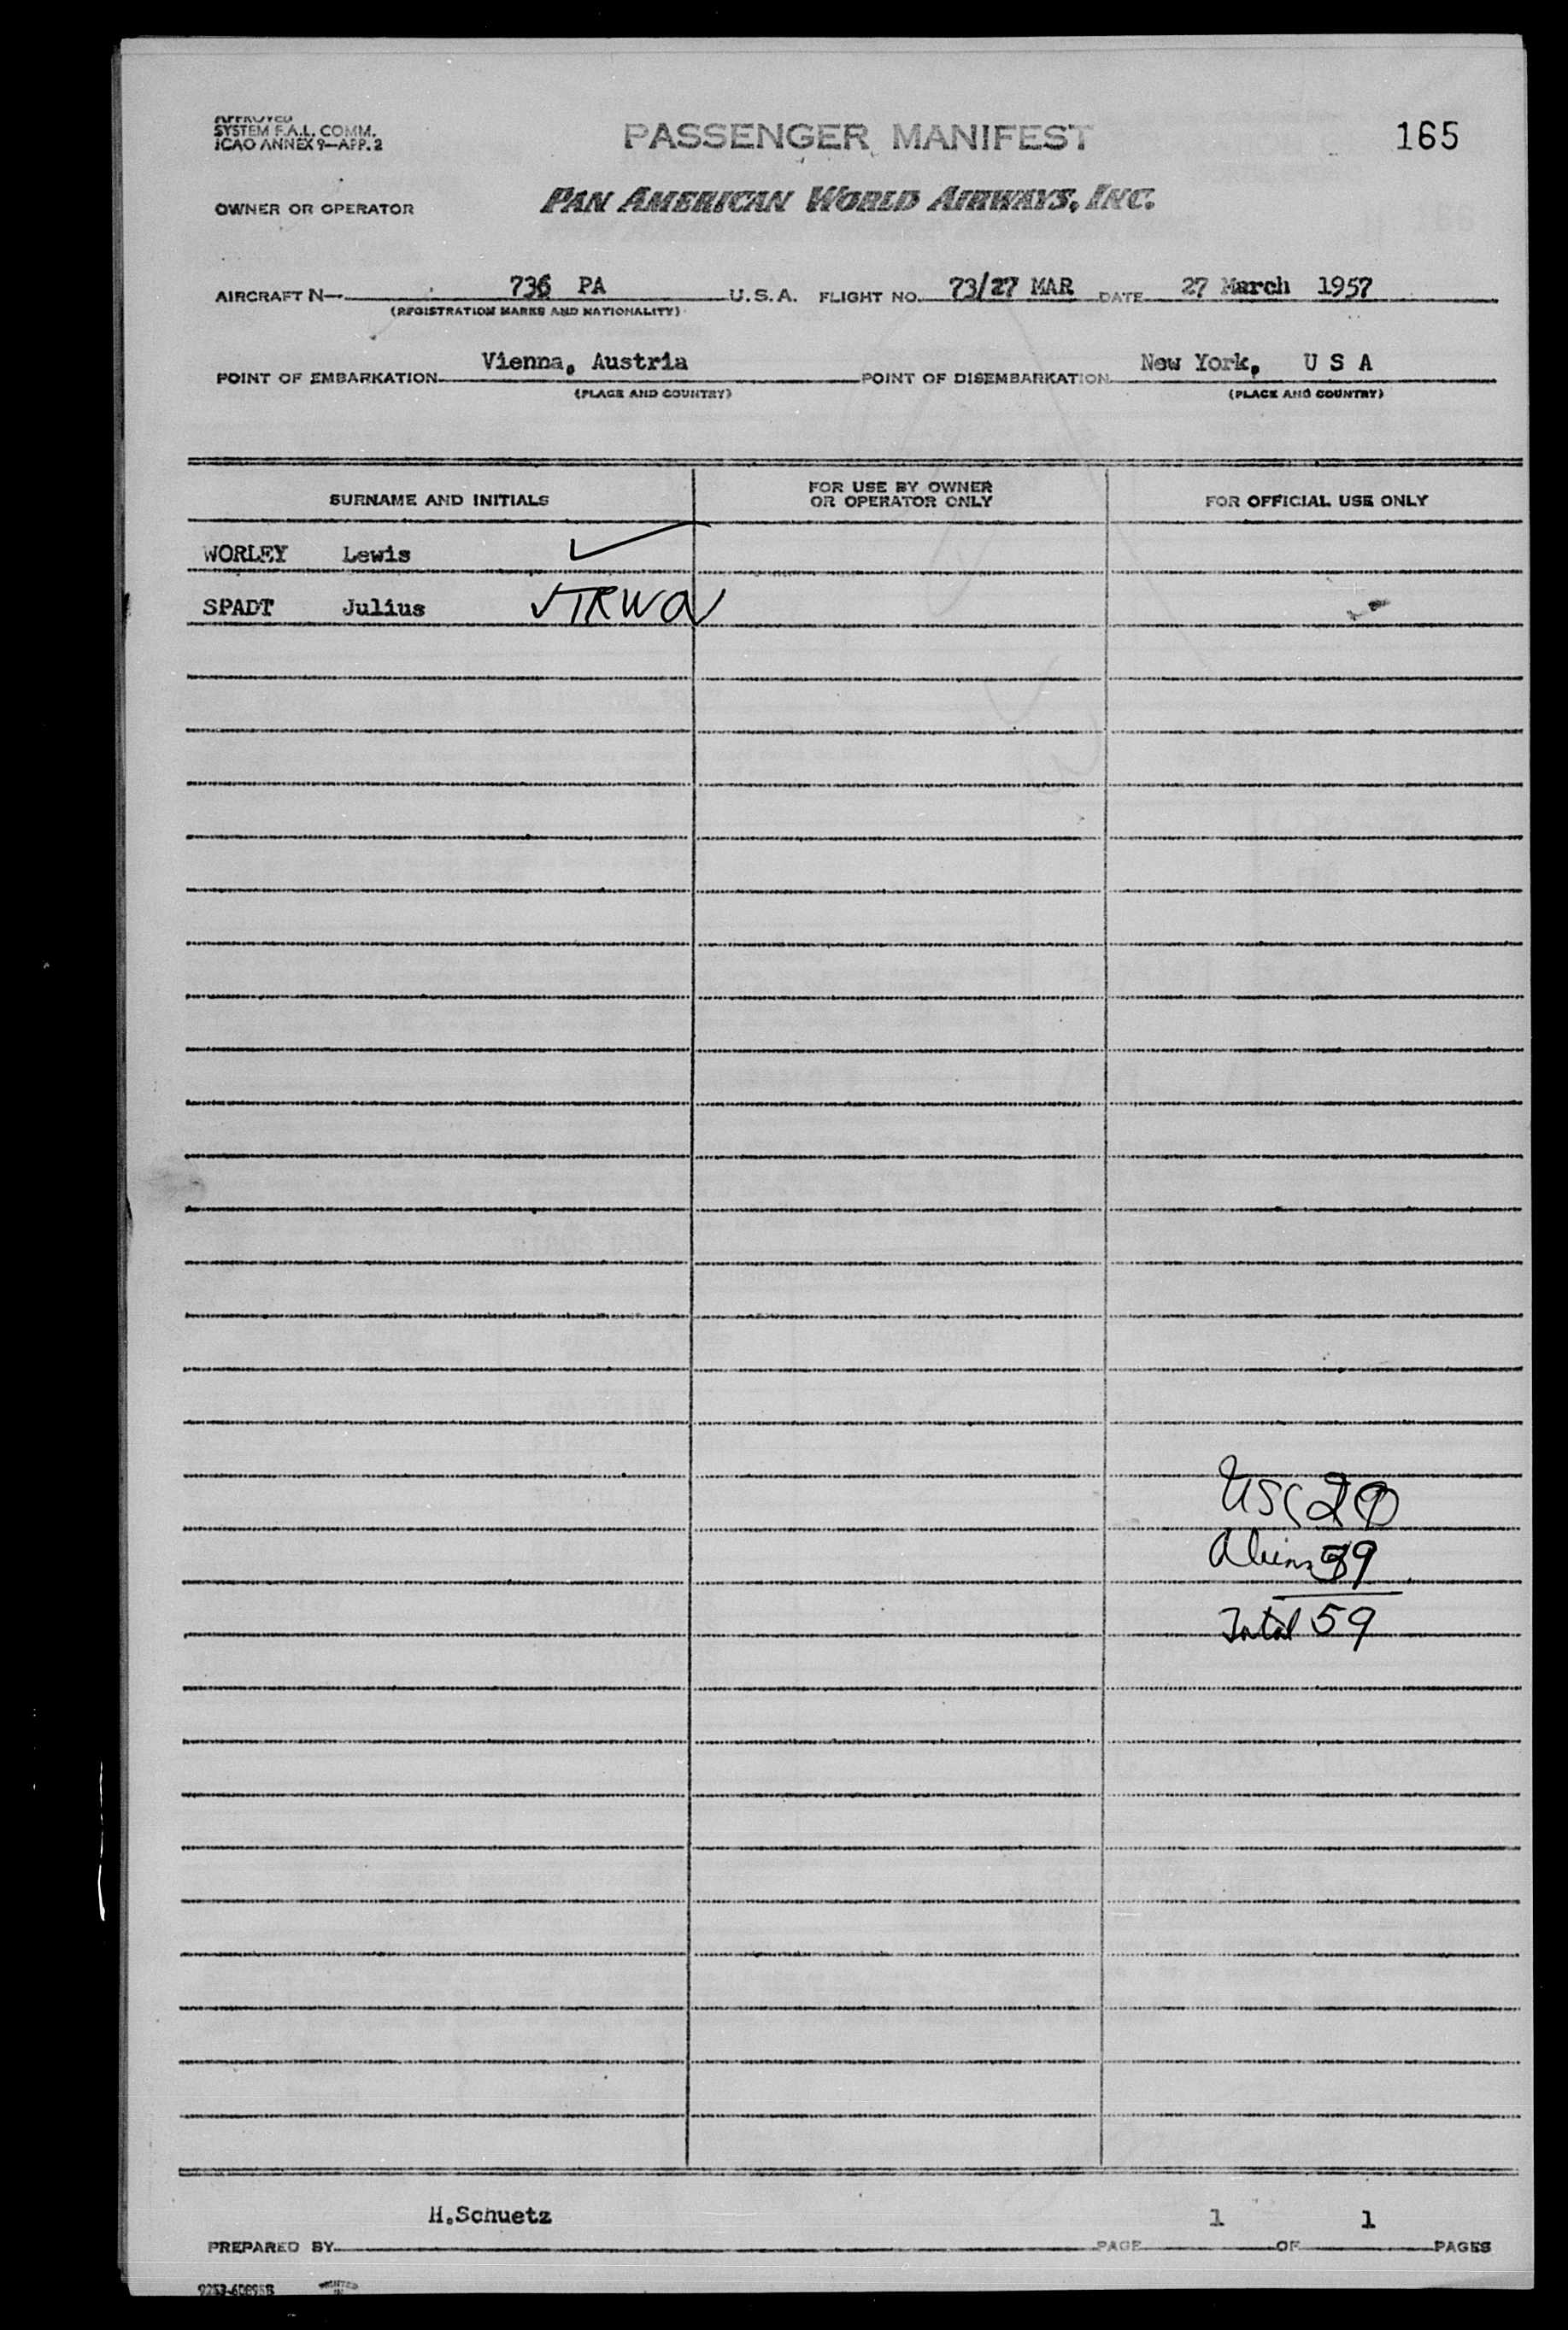 APPROVED
SYSTEM F.A.L. COMM.
ICAO ANNEX 9—APP. 2
PASSENGER MANIFEST
165
OWNER OR OPERATOR
PAN AMERICAN WORLD AIRWAYS, INC.
AIRCRAFT N— 736 PA U.S.A. FLIGHT NO. 73/27 MAR DATE 27 March 1957
(REGISTRATION MARKS AND NATIONALITY)
POINT OF EMBARKATION Vienna, Austria POINT OF DISEMBARKATION New York, U S A
(PLACE AND COUNTRY) (PLACE AND COUNTRY)
SURNAME AND INITIALS
FOR USE BY OWNER
OR OPERATOR ONLY
FOR OFFICIAL USE ONLY
WORLEY Lewis
SPADT Julius TRWO
USC 20
Aliens 39
Total 59
H.Schuetz
PREPARED BY PAGE 1 OF 1 PAGES
PRINTED
IN